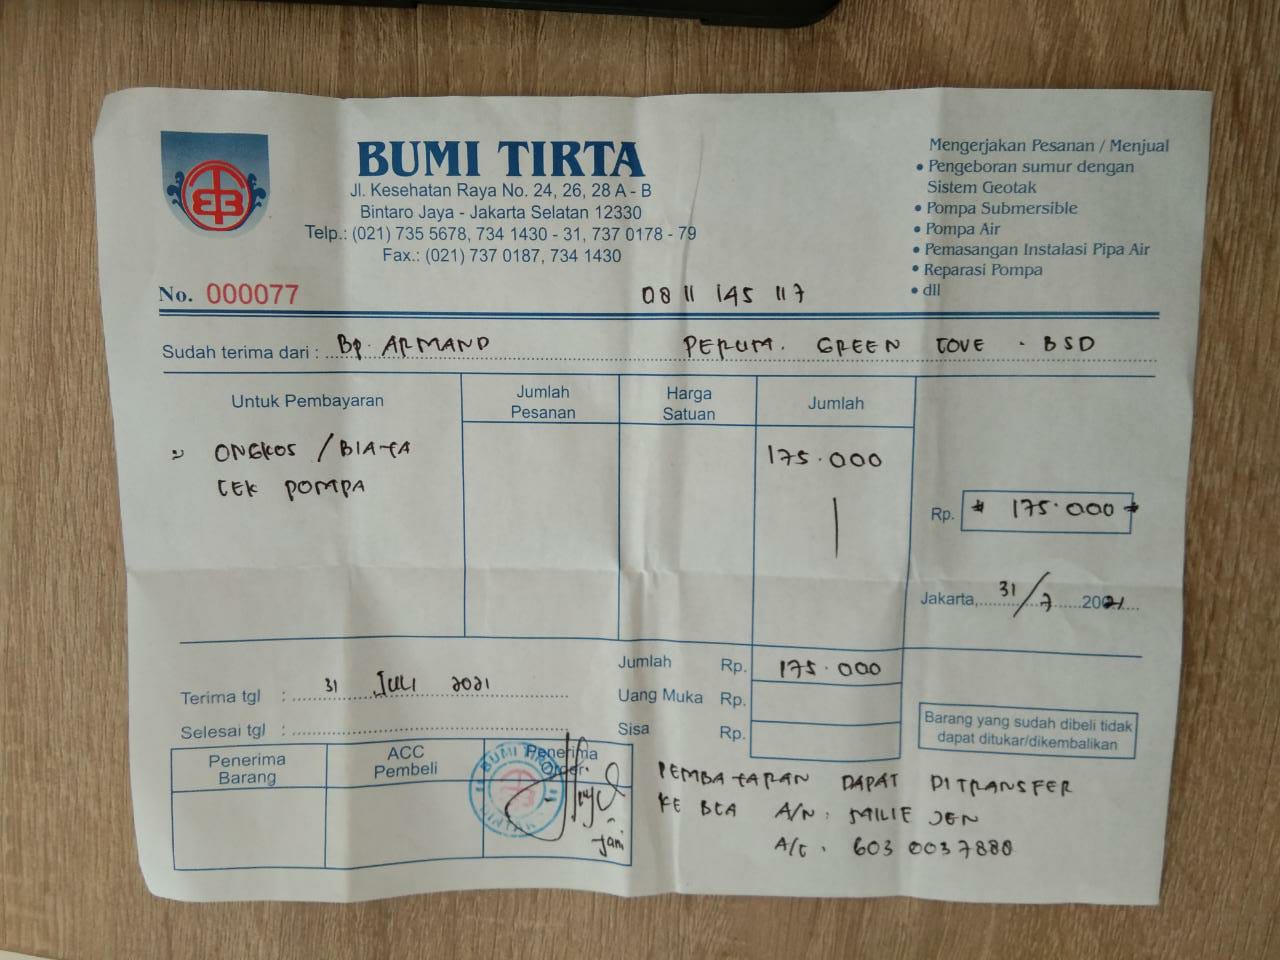 BUMI TIRTA
Jl. Kesehatan Raya No. 24, 26, 28 A - B
Bintaro Jaya - Jakarta Selatan 12330
Telp.: (021) 735 5678, 734 1430 - 31, 737 0178 - 79
Fax.: (021) 737 0187, 734 1430
Mengerjakan Pesanan / Menjual
• Pengeboran sumur dengan
Sistem Geotak
• Pompa Submersible
• Pompa Air
• Pemasangan Instalasi Pipa Air
• Reparasi Pompa
• dll
No. 000077
0811 145 117
Sudah terima dari : Bp. ARMAND PERUM. GREEN COVE . BSD
Untuk Pembayaran Jumlah Pesanan Harga Satuan Jumlah
ONGKOS / BIAYA 175.000
CEK POMPA
Rp. # 175.000 #
Jakarta, 31/7 2021
Jumlah Rp. 175.000
Terima tgl : 31 JULI 2021
Uang Muka Rp.
Selesai tgl :
Sisa Rp.
Barang yang sudah dibeli tidak
dapat ditukar/dikembalikan
Penerima Barang ACC Pembeli Penerima Order
BUMI TIRTA
Jani
PEMBAYARAN DAPAT DITRANSFER
KE BCA A/N : MILIE JEN
A/C . 603 0037888